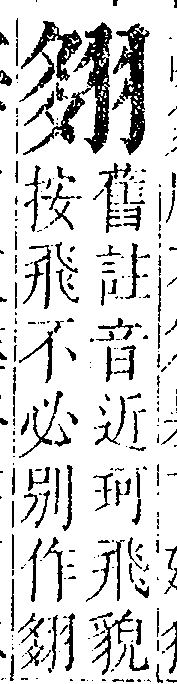 翗
舊註音近珂飛貌
按飛不必別作翗